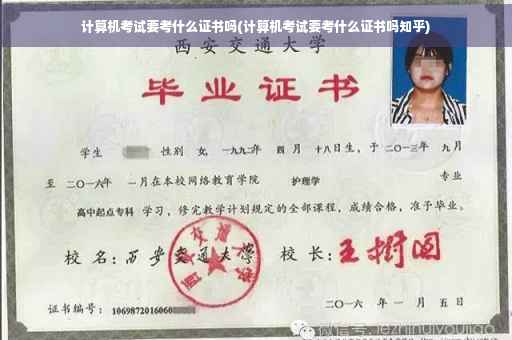 计算机考试要考什么证书吗(计算机考试要考什么证书吗知乎)
西安交通大学
毕业证书
学生 性别 女, 一九九二年 四 月 十八日生, 于 二〇一三年 九月
至 二〇一六年 一月在本校网络教育学院 护理学 专业
高中起点专科 学习, 修完教学计划规定的全部课程, 成绩合格, 准予毕业。
校 名: 西安交通大学 校 长: 王树国
证书编号: 1069872016060
二〇一六 年 一 月 五 日
微信号: jezhihuiyoujiao